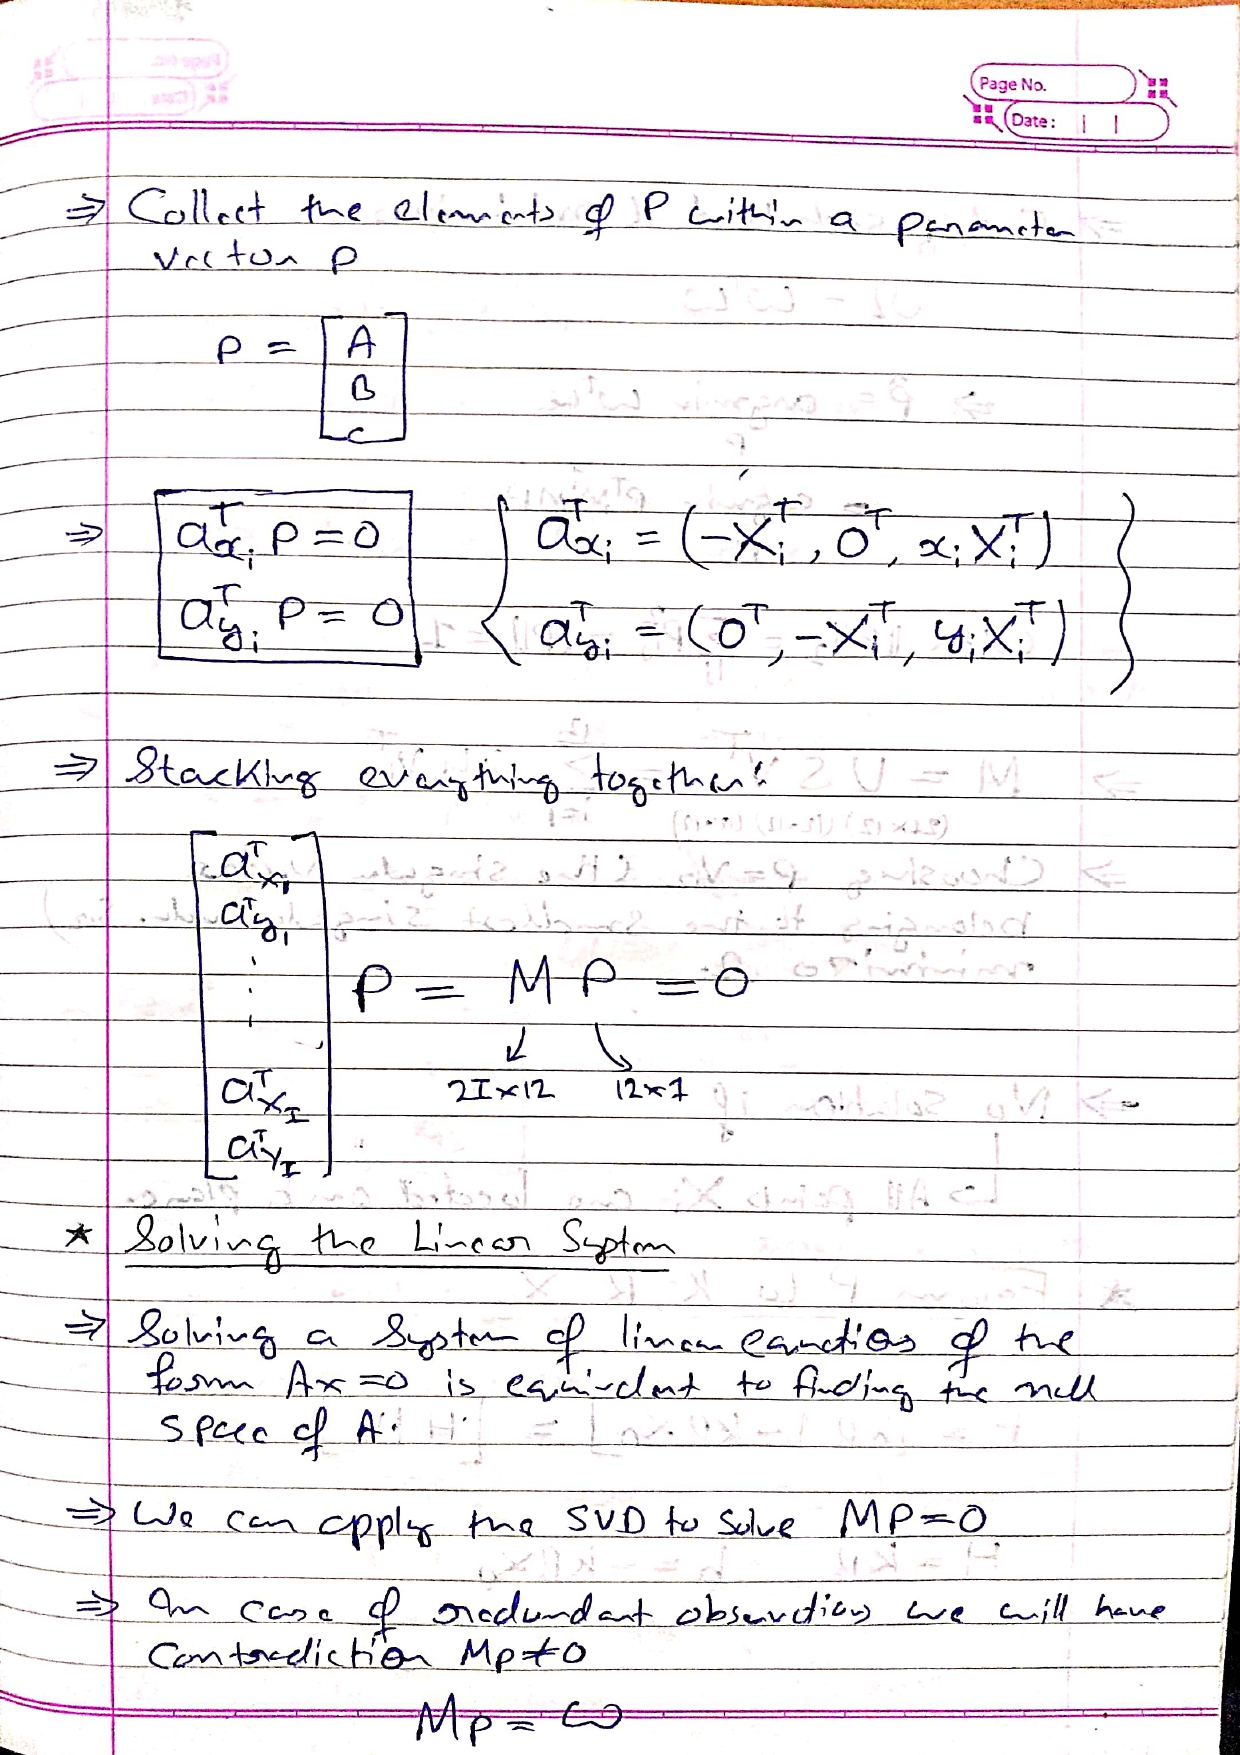 Page No.
Date:
⇒ Collect the elements of P within a parameter
vector p
p = [A
B
C]
⇒ aᵀxᵢ p = 0 { aᵀxᵢ = (-Xᵢᵀ, 0ᵀ, xᵢXᵢᵀ) }
aᵀyᵢ p = 0 { aᵀyᵢ = (0ᵀ, -Xᵢᵀ, yᵢXᵢᵀ) }
⇒ Stacking everything together:
[aᵀx₁
aᵀy₁
⋮
p = M p = 0
2I×12 12×1
aᵀx_I
aᵀy_I]
* Solving the Linear System
⇒ Solving a system of linear equations of the
form Ax=0 is equivalent to finding the null
space of A.
⇒ We can apply the SVD to solve MP=0
⇒ In case of redundant observations we will have
Contradiction Mp≠0
Mp = ω